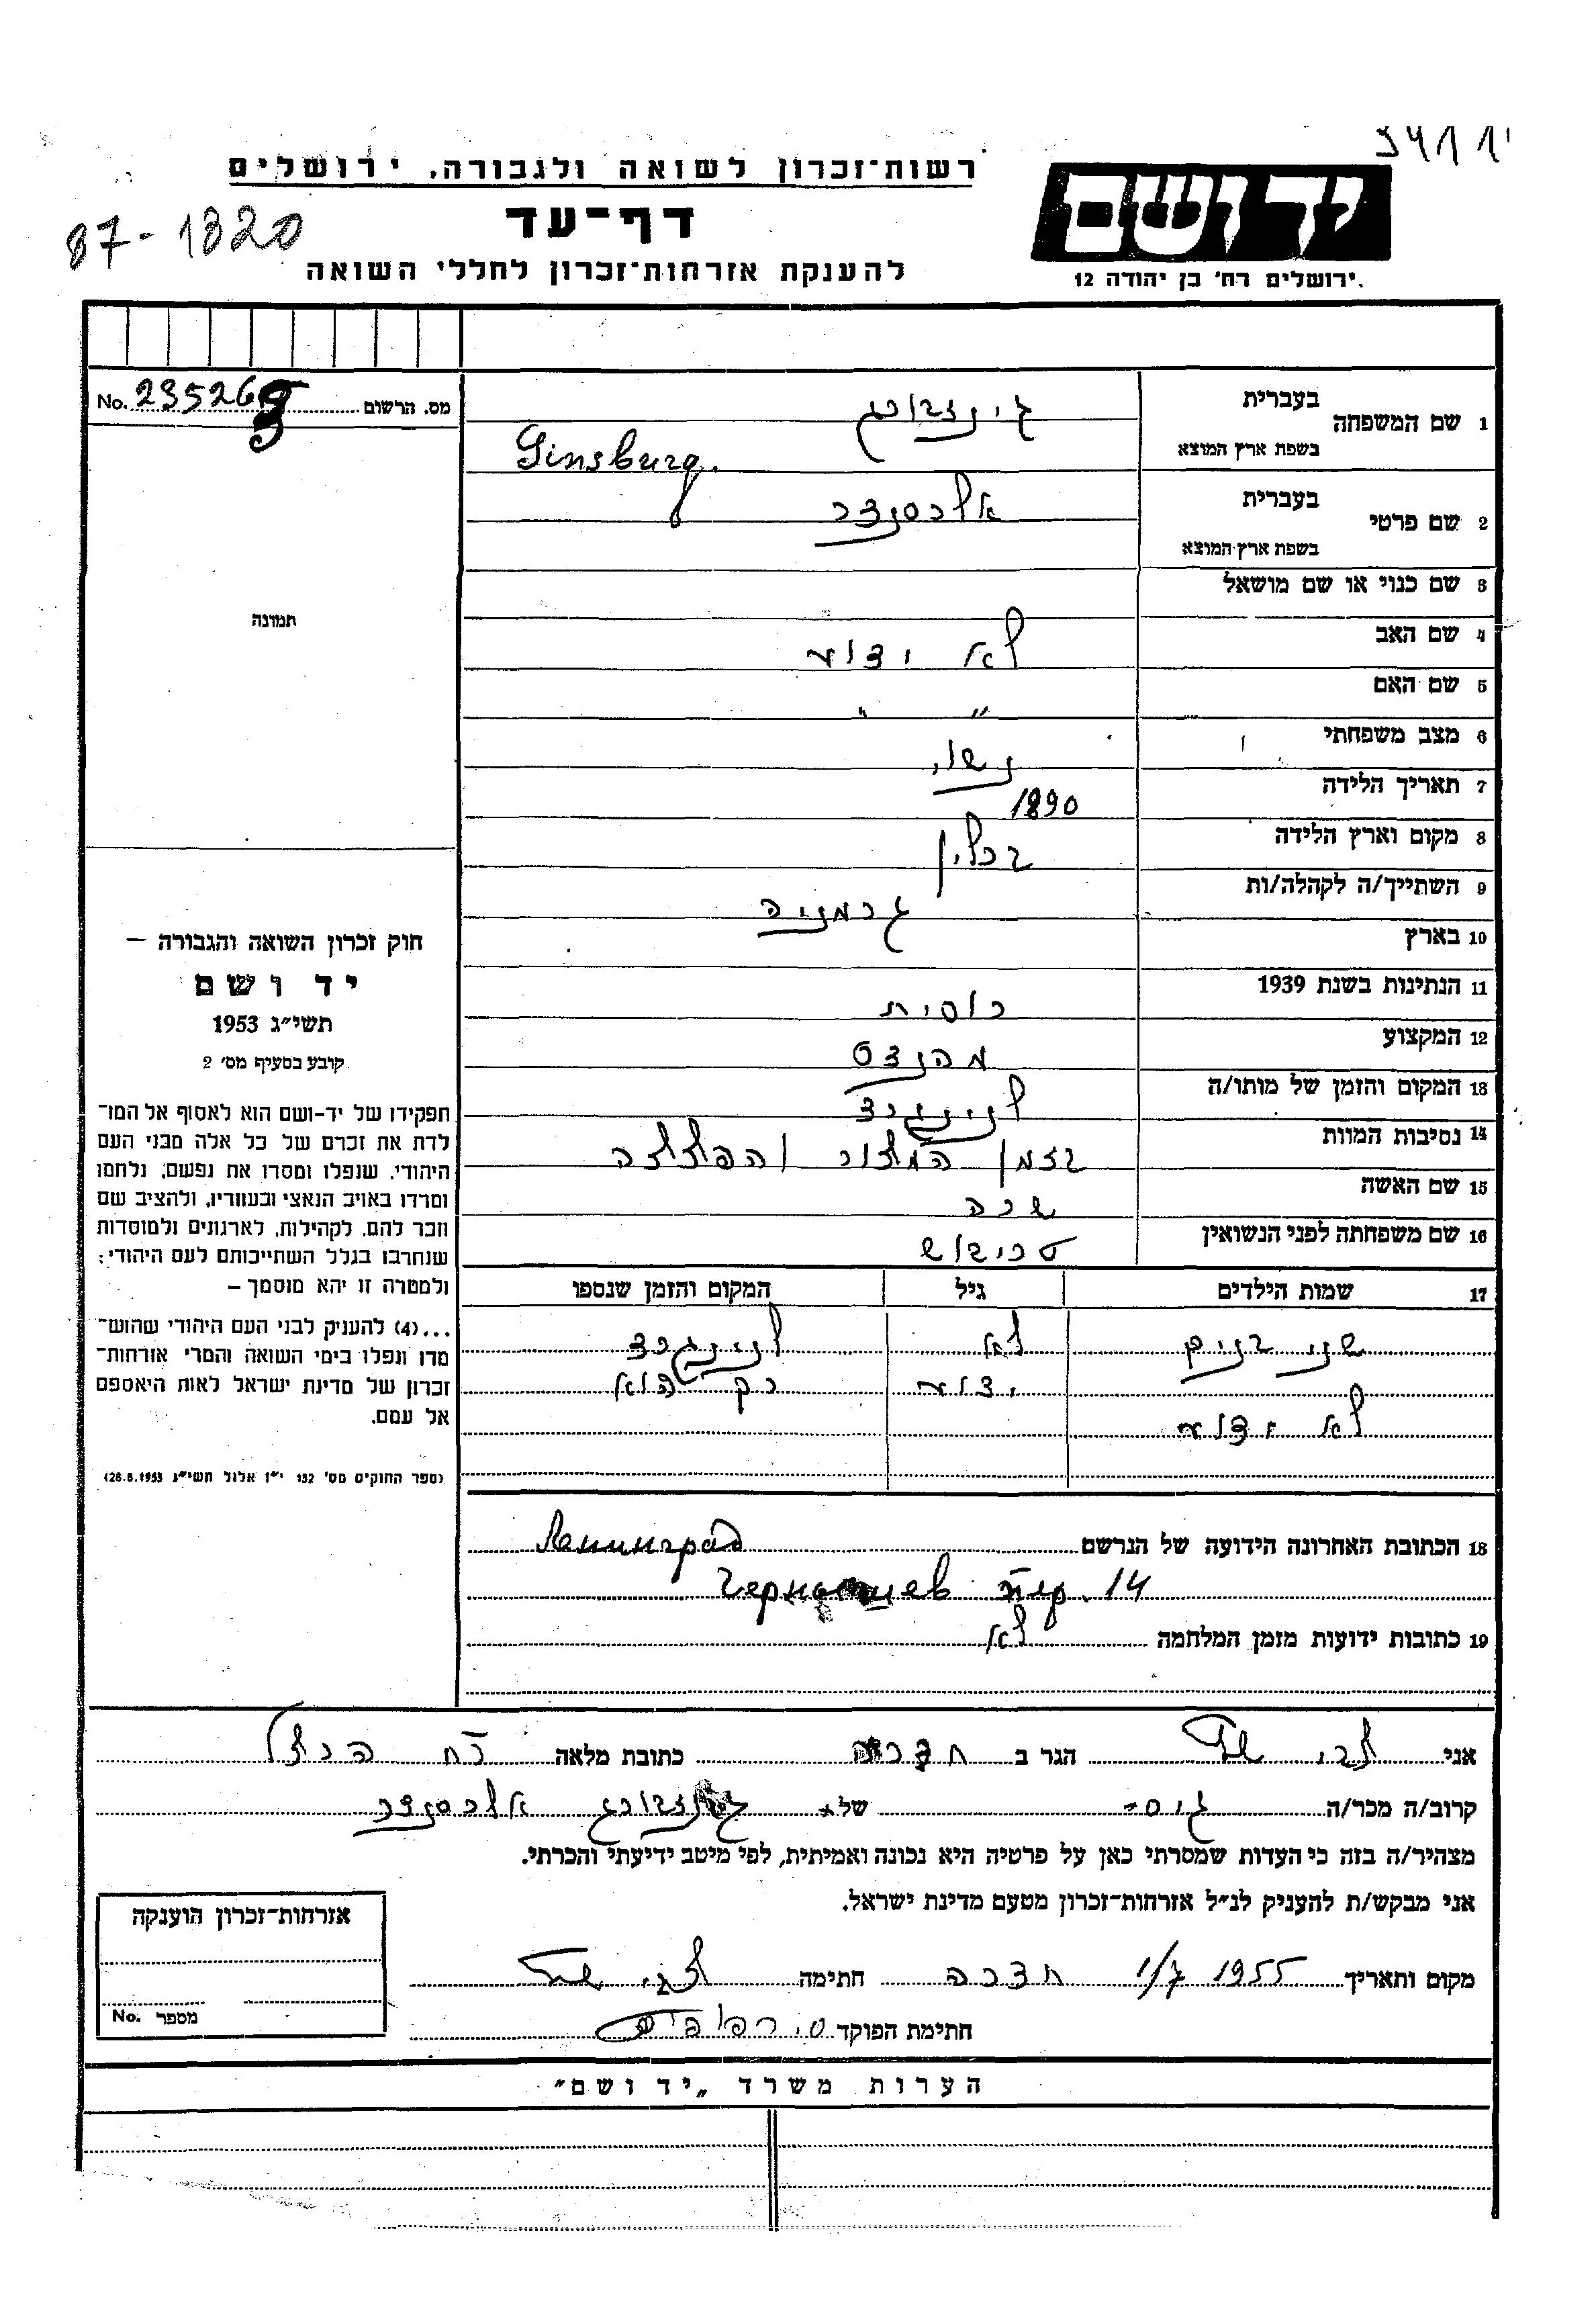 רשות־זכרון לשואה ולגבורה, ירושלים
דף־עד
להענקת אזרחות־זכרון לחללי השואה
87-1820
יד ושם
ירושלים רח' בן יהודה 12
מס. הרשום No. 23526
1 שם המשפחה בעברית גינזבורג
בשפת ארץ המוצא Ginsburg.
2 שם פרטי בעברית אלכסנדר
בשפת ארץ־המוצא
3 שם כנוי או שם מושאל
4 שם האב לא ידוע
5 שם האם " "
6 מצב משפחתי נשוי
7 תאריך הלידה 1890
8 מקום וארץ הלידה ברלין
9 השתייך/ה לקהלה/ות גרמניה
10 בארץ
11 הנתינות בשנת 1939 רוסית
12 המקצוע מהנדס
13 המקום והזמן של מותו/ה לנינגרד
14 נסיבות המוות בזמן המצור וההפצצה
15 שם האשה שרה
16 שם משפחתה לפני הנשואין
17 שמות הילדים גיל המקום והזמן שנספו
שני בנים לא לנינגרד
ידוע רק הוא
לא ידוע
18 הכתובת האחרונה הידועה של הנרשם Ленинград
пер. 14
19 כתובות ידועות מזמן המלחמה לא
תמונה
חוק זכרון השואה והגבורה –
יד ושם
תשי"ג 1953
קובע בסעיף מס' 2
תפקידו של יד-ושם הוא לאסוף אל המו־
לדת את זכרם של כל אלה מבני העם
היהודי, שנפלו ומסרו את נפשם, נלחמו
ומרדו באויב הנאצי ובעוזריו, ולהציב שם
וזכר להם, לקהילות, לארגונים ולמוסדות
שנחרבו בגלל השתייכותם לעם היהודי;
ולמטרה זו יהא מוסמך –
...(4) להעניק לבני העם היהודי שהוש־
מדו ונפלו בימי השואה והמרי אזרחות־
זכרון של מדינת ישראל לאות היאספם
אל עמם.
(ספר החוקים מס' 132 י"ז אלול תשי"ג 28.8.1953)
אני צבי הגר ב חדרה כתובת מלאה רח
קרוב/ה מכר/ה גיס של גינזבורג אלכסנדר
מצהיר/ה בזה כי העדות שמסרתי כאן על פרטיה היא נכונה ואמיתית, לפי מיטב ידיעתי והכרתי.
אני מבקש/ת להעניק לנ"ל אזרחות־זכרון מטעם מדינת ישראל.
מקום ותאריך 1/7 1955 חדרה חתימה צבי
חתימת הפוקד
אזרחות־זכרון הוענקה
מספר No.
הערות משרד „יד ושם"